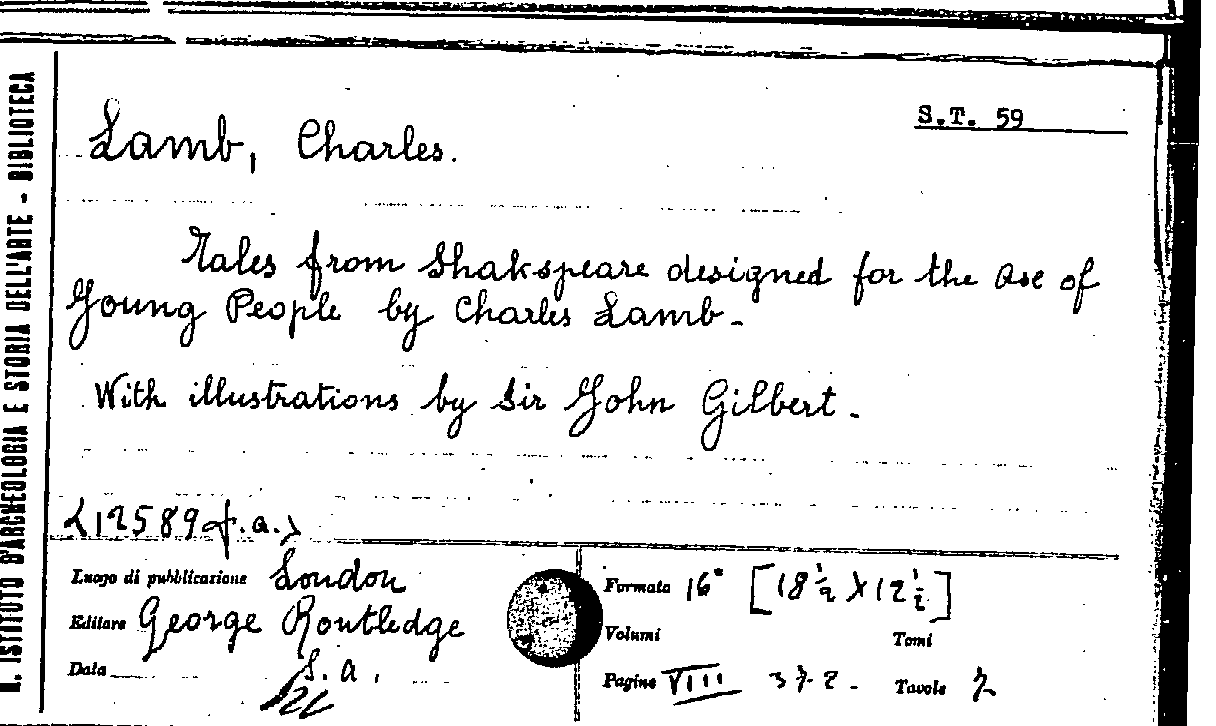 R. ISTITUTO D'ARCHEOLOGIA E STORIA DELL'ARTE - BIBLIOTECA
S.T. 59
Lamb, Charles.
Tales from Shakspeare designed for the use of
Young People by Charles Lamb.
With illustrations by Sir John Gilbert.
<12589 f.a.>
Luogo di pubblicazione London
Editore George Routledge
Data s. a.
Formato 16° [18 ½ x 12 ½]
Volumi Tomi
Pagine VIII 372. Tavole